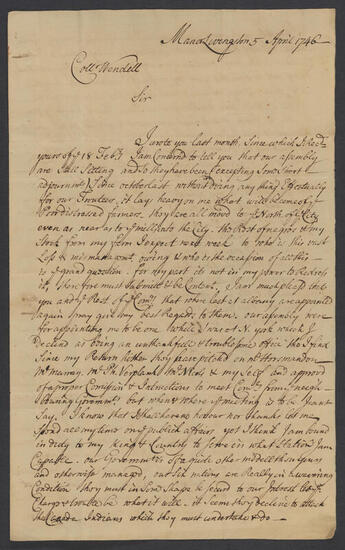 Manor Livingston 5 April 1746
Coll Wendell
Sir
I wrote you last month. Since which I Rec'd
yours of ye 18 Feb'y I am Concern'd to tell you that our assembly
are Still Sitting and So they have been (Excepting Some Short
adjournm'ts) Since october last without doing any thing Effectually
for our Frontiers, it lay heavy on me what will become of
Poor distressed farmers, they are all moved to ye North of ye City
even as near as to 7 mile to the City. the Rest of negros & my
Stock from my farm I expect next week to Who is this vast
Loss & mismanagm't owing & who is the occasion of all this
is ye grand question. for my part its not in my power to Redress
it, Therefore must Submitt & be Content. I am much pleas'd that
you and ye Rest of ye Com'rs that where last at albany are appointed
again pray give my best Regards to them. our assembly were
for appointing me to be one while I was at N. york which I
Declin'd as being an unthankfull & troublesome office. tho I find
Since my Return hither they have pitched on Mr Horsmandon
Mr Murray, Mr Ph Verplank and my Self and approv'd
of a proper Comission & Instructions to meet Com'rs from
Governm'ts. but when & where the meeting is to be I cant
Say. I know that I shall have no honour nor thanks let me
Spend all my time on ye publick affairs, yet I think I am bound
in duty to my King & Country to Serve in what Station I am
Capable. our Governm't is
and otherwise managed. our Six nations are Really in a wavering
Condition They must in Some Shape be Secur'd to our Interest the
Charge of be what it will. it Seems they decline to attack
the Indians which they must undertake & do —